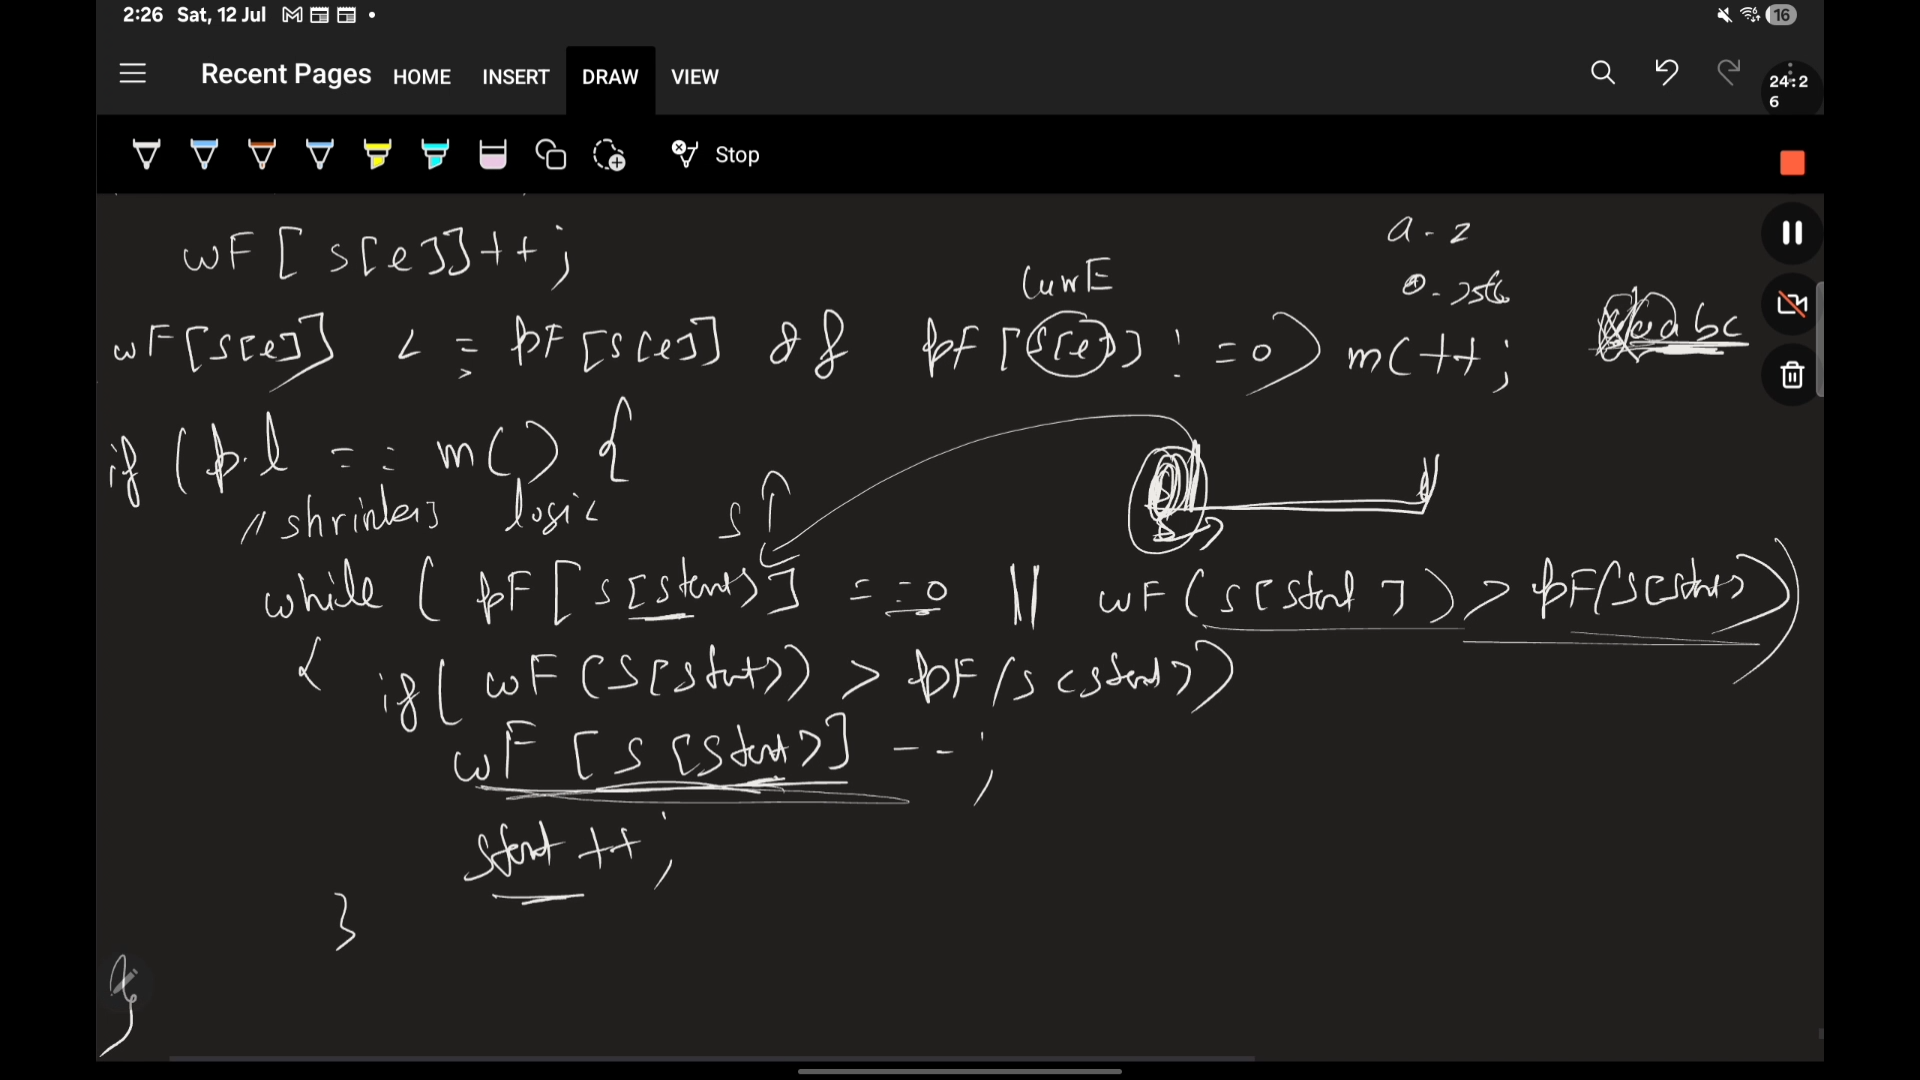 2:26 Sat, 12 Jul 16
Recent Pages HOME INSERT DRAW VIEW
24:2
6
Stop
wF [ s[e]]++;
a - z
CurrE
wF[s[e]] <= pF[s[e]] && pF[s[e]] != 0) mC++;
abc
if (p.l == mC) {
// shrinking logic
s
while ( pF[s[start]] == 0 || wF(s[start]) > pF(s[start]))
{ if( wF(s[start]) > pF(s[start])
wF[s[start]]--;
start++;
}